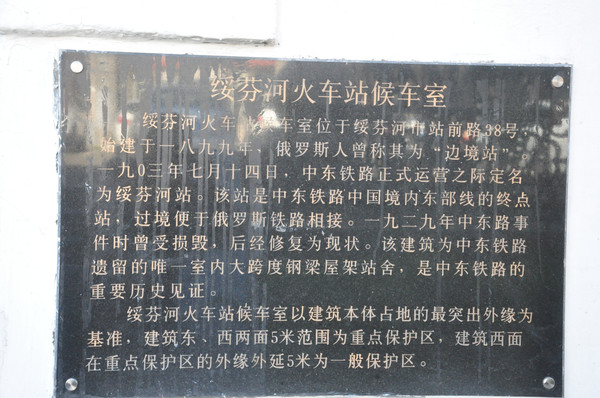 绥芬河火车站候车室
绥芬河火车 候车室位于绥芬河市站前路38号，
始建于一八九九年、俄罗斯人曾称其为“边境站”。
一九0三年七月十四日，中东铁路正式运营之际定名
为绥芬河站。该站是中东铁路中国境内东部线的终点
站，过境便于俄罗斯铁路相接。一九二九年中东路事
件时曾受损毁，后经修复为现状。该建筑为中东铁路
遗留的唯一室内大跨度钢梁屋架站舍，是中东铁路的
重要历史见证。
绥芬河火车站候车室以建筑本体占地的最突出外缘为
基准，建筑东、西两面5米范围为重点保护区，建筑西面
在重点保护区的外缘外延5米为一般保护区。